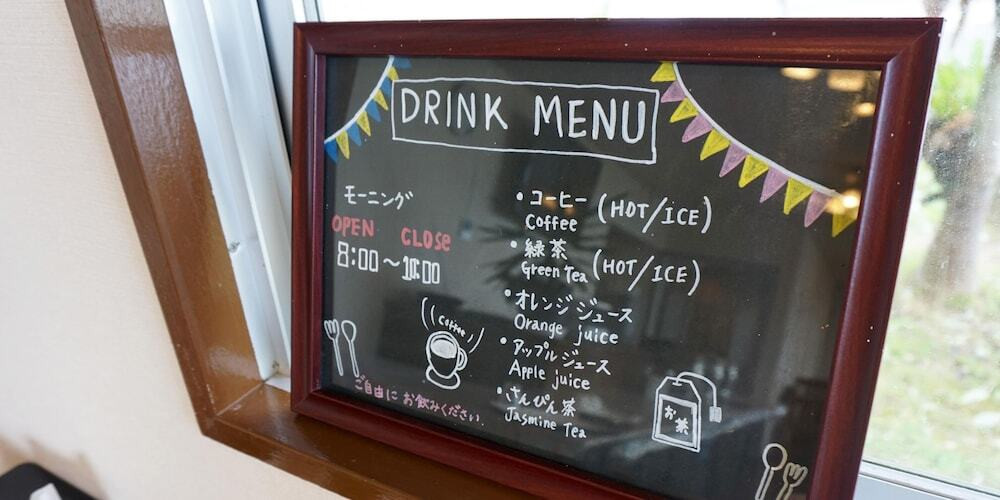 DRINK MENU
モーニング
OPEN CLOSE
8:00～10:00
coffee
ご自由に お飲みください
・コーヒー (HOT/ICE)
Coffee
・緑茶 (HOT/ICE)
Green Tea
・オレンジジュース
Orange juice
・アップルジュース
Apple juice
・さんぴん茶
Jasmine Tea
お茶